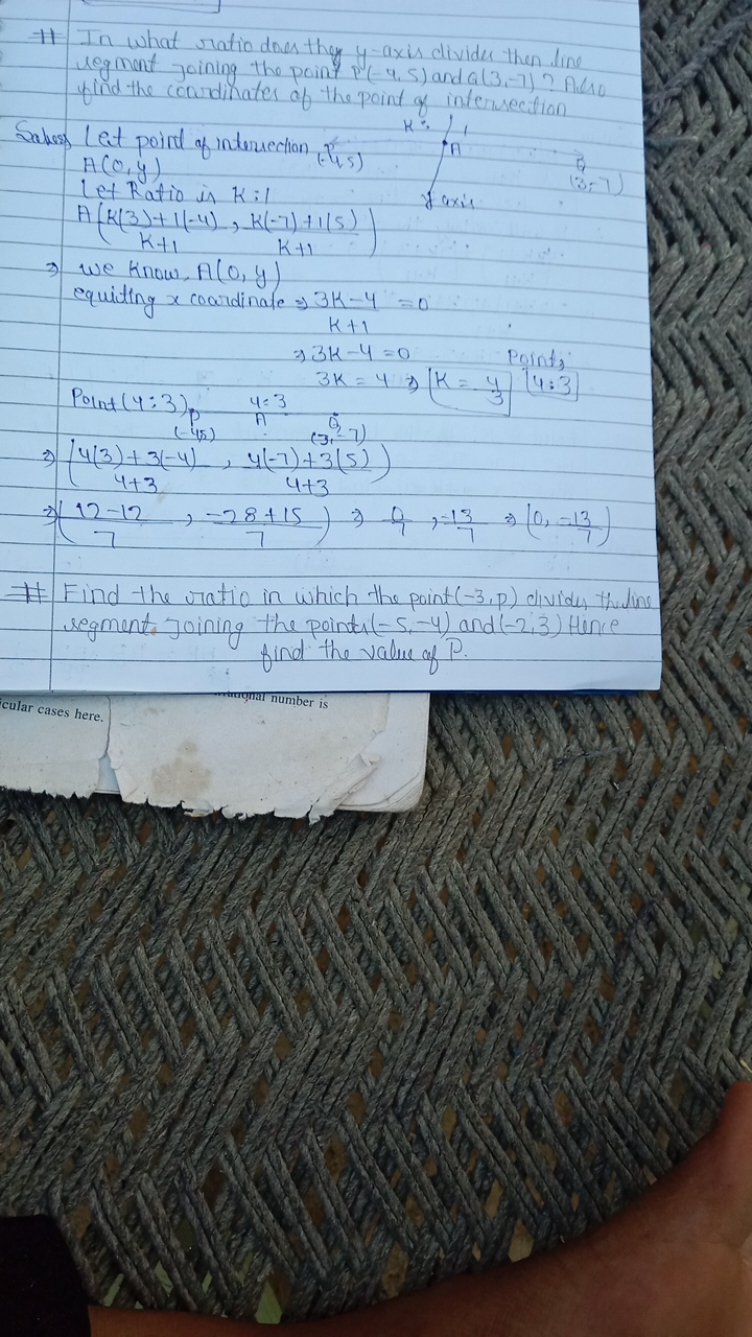 # In what ratio does they y-axis divides then line
segment joining the point P(-4,5) and Q(3,-7)? Also
find the coordinates of the point of intersection
Let point of intersection
K: 1
(-4,5)
A
Q
(3,-7)
A(0,y)
Y axis
Let Ratio is K:1
A(K(3)+1(-4)/K+1, K(-7)+1(5)/K+1)
⇒ we know, A(0,y)
equiting x coordinate ⇒ 3K-4/K+1 =0
⇒ 3K-4=0
Points
3K=4 ⇒ [K = 4/3] [4:3]
Point(4:3)
P 4:3 Q
(-4,5) A (3,-7)
⇒ (4(3)+3(-4)/4+3, 4(-7)+3(5)/4+3)
⇒ (12-12/7, -28+15/7) ⇒ 0/7, -13/7 ⇒ (0, -13/7)
# Find the ratio in which the point(-3,P) divides the line
segment joining the points(-5,-4) and(-2,3) Hence
find the value of P.
number is
icular cases here.